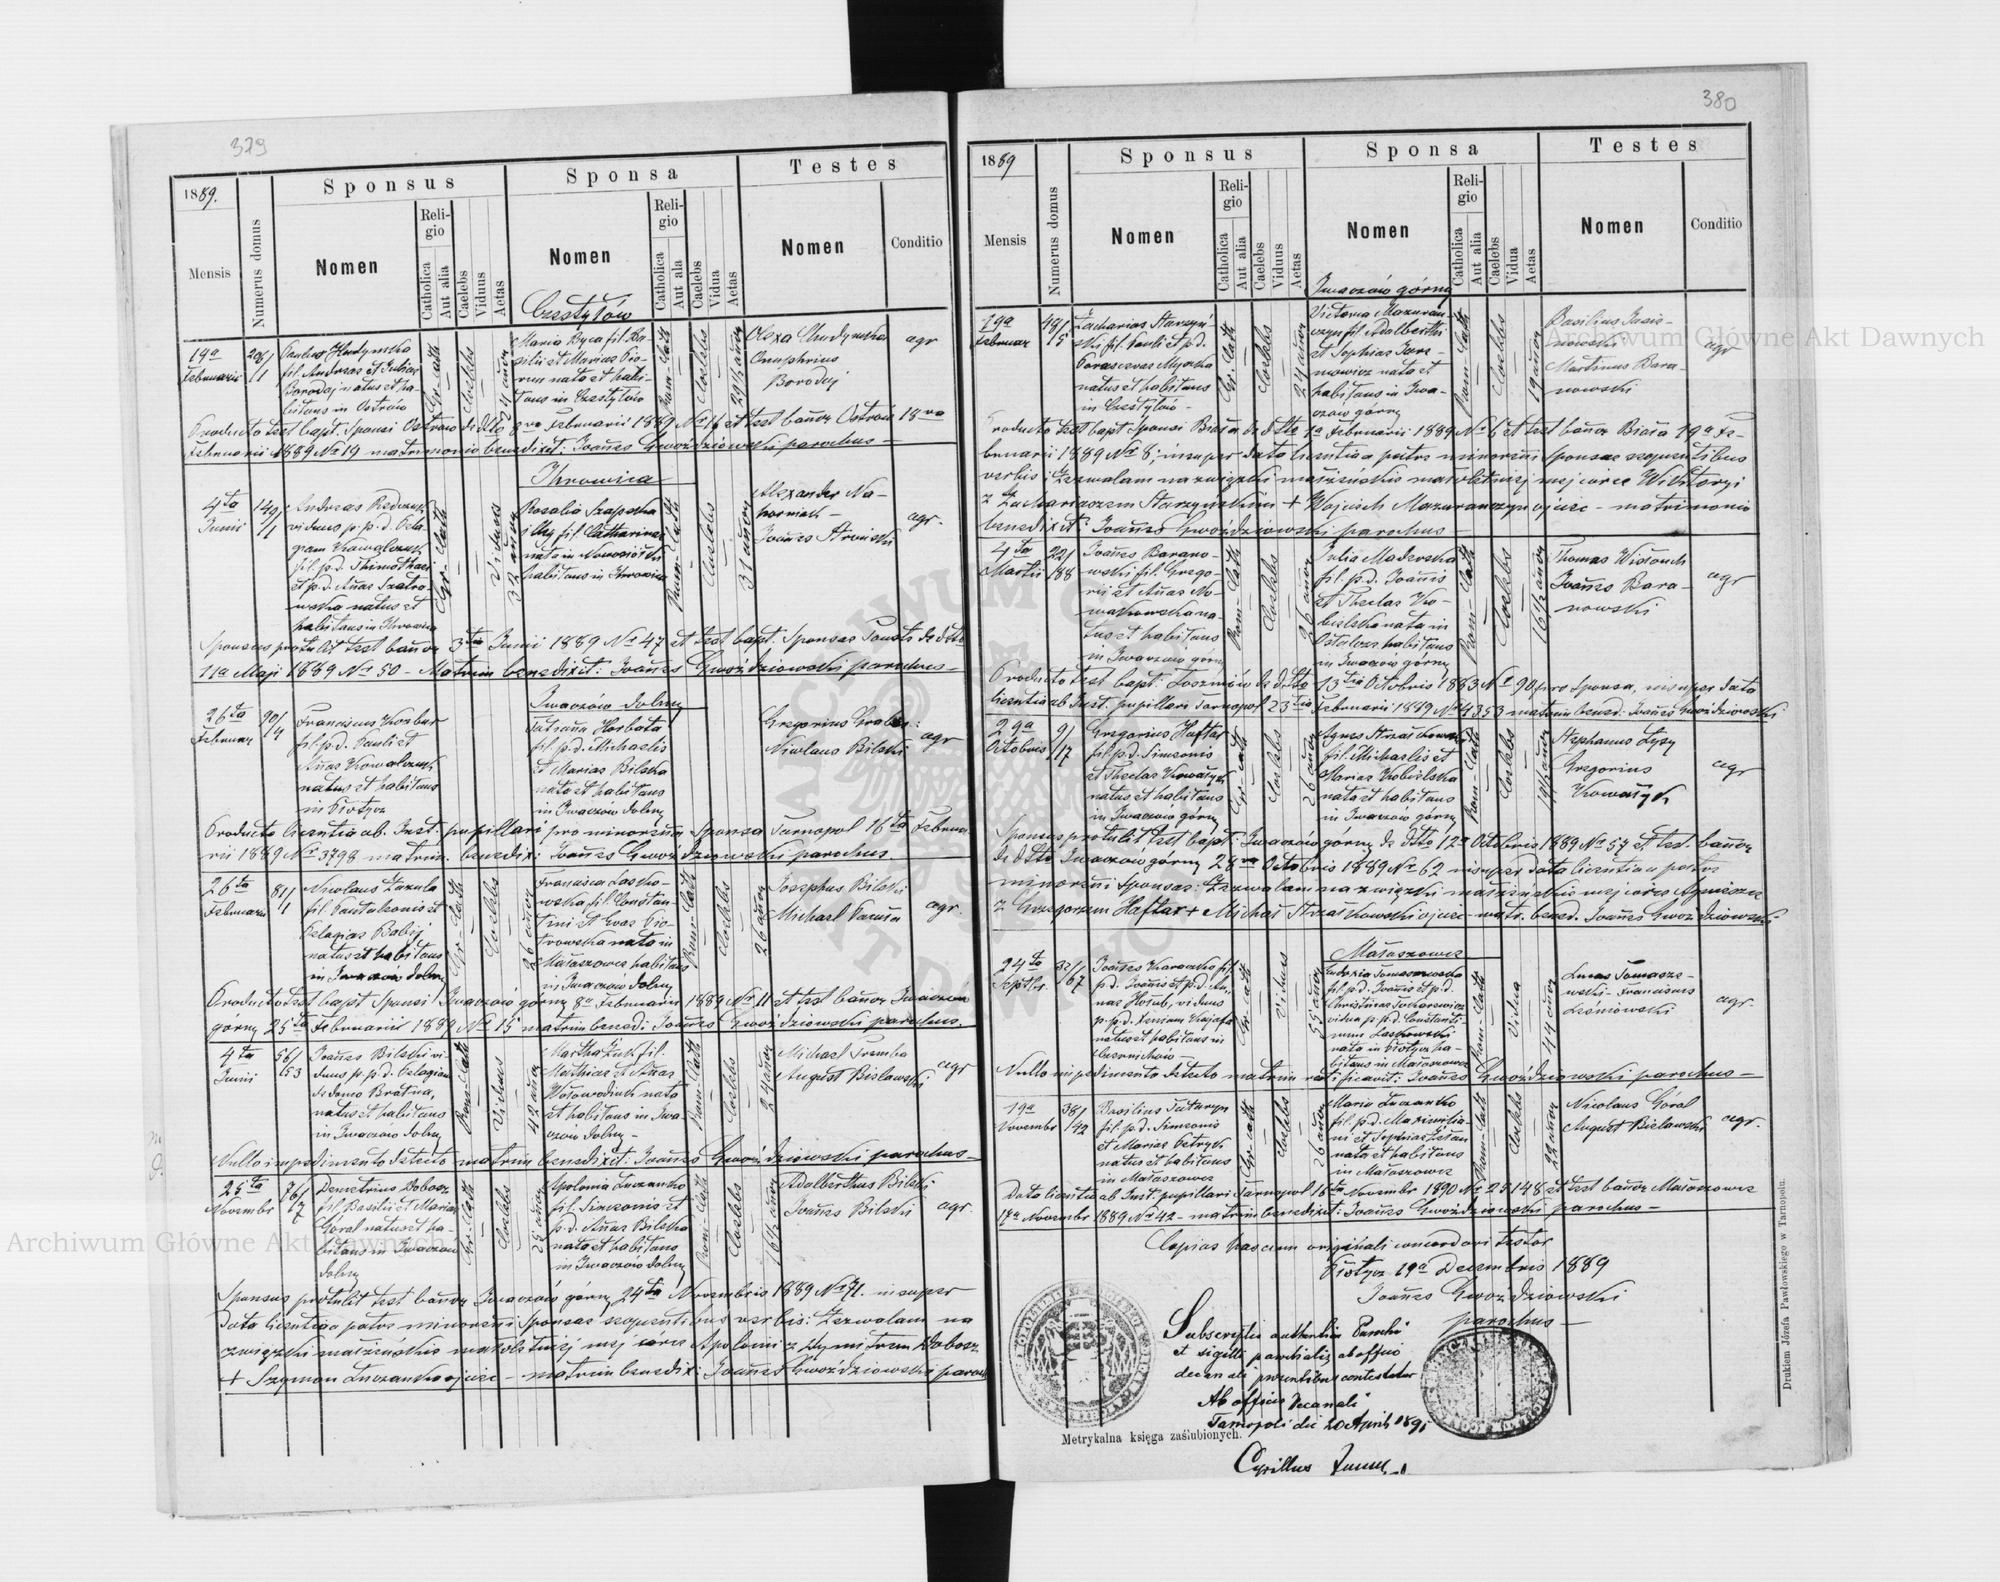 379
1889.
Mensis
Numerus domus
Sponsus
Nomen
Religio
Catholica
Aut alia
Caelebs
Viduus
Aetas
Sponsa
Nomen
Religio
Catholica
Aut ala
Caelebs
Vidua
Aetas
Testes
Nomen
Conditio
Czestylów
19a
Februarii
Paulus
fil. Andreae et Juliae
Borodaj natus et ha-
bitans in Ostrów
Gr. cath
Caelebs
24 annor
Maria Byca fil. Ba-
silii et Mariae
nata et habi-
tans in Czestylów
Rom. Cath
Caelebs
Onuphrius
Borodaj
agr
Producto test bapt. Sponsi Ostrów de dto Februarii 1889 No 16 et test bannor Ostrów 18va
Februarii 1889 No 19 matrimonio benedixit: Joannes Gwoździowski parochus
Ihrowica
4ta
Junii
149/1
Andreas
viduus p. p. d. Pela-
giam Kowalczuk
fil. p. d. Thimothaei
et p. d. Annae Szatro-
wska natus et
habitans in Ihrowica
Gr. Cath
Viduus
32 annor
Rosalia Szaposka
illeg fil. Catharinae
nata in
habitans in Ihrowica
Rom. Cath
Caelebs
31 annor
Alexander Na-
Joannes
agr.
Sponsus protulit test bannor 3tia Junii 1889 No 47 et test bapt. Sponsae de dto
11a Maji 1889 No 50 - Matrim benedixit: Joannes Gwoździowski parochus
Iwaczów dolny
26ta
Februar
90/4
Franciscus Korbut
fil. p. d. Pauli et
Annae Kowalczuk
natus et habitans
in Płotycz
Tatianna Horbata
fil. p. d. Michaelis
et Mariae Bilska
nata et habitans
in Iwaczów dolny
Gregorius
Nicolaus Bilski
agr
Producto licentia ab. Inst. pupillari pro minorenna Sponsa Tarnopol 16ta Februa-
rii 1889 No 3798 matrim. benedix: Joannes Gwoździowski parochus.
26ta
Februarii
81/1
Nicolaus Zazula
fil. Pantaleonis et
Pelagiae Babij
natus et habitans
in Iwaczów dolny
Gr. Cath
Caelebs
26 annor
Francisca Lasko-
wska fil. Constan-
tini et Evae Pio-
trowska nata in
Małaszowce habitans
in Iwaczów dolny
Rom. Cath
Caelebs
26 annor
Josephus Bilski
Michael
agr.
Producto test bapt Sponsi Iwaczów górny 8a Februarii 1889 No 11 et test bannor Iwaczów
górny 25ta Februarii 1889 No 15 matrim bened: Joannes Gwoździowski parochus.
4ta
Junii
56/53
Joannes Bilski vi-
duus p. p. d. Pelagiam
de domo Bratna,
natus et habitans
in Iwaczów dolny
Rom. Cath
Viduus
42 annor
Martha Żuk fil.
Mathiae et Annae
Wołowodiuk nata
et habitans in Iwa-
czów dolny -
Rom. Cath
Caelebs
24 annor
Michael Tremba
August Bielawski
agr
Nullo impedimento detecto matrim benedixit: Joannes Gwoździowski parochus -
25ta
Novembr
76/7
Demetrius Dobosz
fil. Basilii et Mariae
Góral natus et ha-
bitans in Iwaczów
dolny
Gr. Cath
Caelebs
25 annor
Apolonia Luczanko
fil. Simeonis et
p. d. Annae Bilska
nata et habitans
in Iwaczów dolny
Rom. Cath
Caelebs
16 1/2 annor
Adalbertus Bilski
Joannes Bilski
agr.
Sponsus protulit test bannor Iwaczów górny 24ta Novembris 1889 No 71. insuper
data licentia a patre minorenni Sponsae sequentibus verbis: Zezwalam na
związki małżeńskie małoletniej mej córce Apolonii z Dymitrem Dobosz
+ Szymon Luczanko ojciec - matrim benedix: Joannes Gwoździowski paroch
380
1889
Mensis
Numerus domus
Sponsus
Nomen
Religio
Catholica
Aut alia
Caelebs
Viduus
Aetas
Sponsa
Nomen
Religio
Catholica
Aut alia
Caelebs
Vidua
Aetas
Testes
Nomen
Conditio
Iwaczów górny
19a
Februar
48/5
Zacharias Starzyń-
ski fil. Pauli et p. d.
Parascevae Myszka
natus et habitans
in Czestylów -
Gr. Cath
Caelebs
24 annor
Victoria Mazuran-
czyn fil. Adalberti
et Sophiae Jare-
mowicz nata et
habitans in Iwa-
czów górny
Rom. Cath
Caelebs
19 annor
Basilius
Martinus Bara-
nowski
agr
Producto test bapt Sponsi Biała de dto 1a Februarii 1889 No 6 et test bannor Biała 19a Fe-
bruarii 1889 No 8; insuper data licentia a patre minorenni Sponsae sequentibus
verbis: Zezwalam na związki małżeńskie małoletniej mej córce Wiktoryi
z Zacharyaszem Starzyńskim + Wojciech Mazuranczyn ojciec - matrimonio
benedixit: Joannes Gwoździowski parochus -
4ta
Martii
22/88
Joannes Barano-
wski fil. Grego-
rii et Annae No-
wakowska na-
tus et habitans
in Iwaczów górny
Rom. Cath
Caelebs
26 annor
Julia Maderska
fil. p. d. Joannis
et Theclae Ko-
bielska nata in
habitans
in Iwaczów górny
Rom. Cath
Caelebs
16 1/2 annor
Thomas
Joannes Bara-
nowski
agr
Producto test bapt: Toszniów de dto 13tia Octobris 1883 No 90 pro Sponsa, insuper data
licentia ab Inst. pupillari Tarnopol 23tia Februarii 1889 No 4353 matrim bened. Joannes Gwoździowski
29a
Octobris
9/17
Gregorius Haftar
fil. p. d. Simeonis
et Theclae Kowałyk
natus et habitans
in Iwaczów górny
Gr. Cath
Caelebs
26 annor
Agnes Strzałkowska
fil. Michaelis et
Mariae Kobielska
nata et habitans
in Iwaczów górny
Rom. Cath
Caelebs
Stephanus Łysy
Gregorius
Kowałyk
agr
Sponsus protulit test bapt: Iwaczów górny de dto 12a Octobris 1889 No 57 et test. bannor
de dto Iwaczów górny 28va Octobris 1889 No 62 insuper data licentia a patre
minorenni Sponsae: Zezwalam na związki małżeńskie mej córce Agnieszce
z Grzegorzem Haftar + Michał Strzałkowski ojciec - matr. bened. Joannes Gwoździowski
Małaszowce
24ta
Septbr.
32/67
Joannes fil.
p. d. Joannis et p. d. An-
nae Hołub, viduus
p. p. d. Xeniam
natus et habitans in
Czernichów -
Gr. Cath
Viduus
55 annor
Eudoxia Tomaszewska
fil. p. d. Joannis et p. d.
Christinae
vidua p. p. d. Constanti-
num Laskowski
nata in Płotycz ha-
bitans in Małaszowce
Rom. Cath
Vidua
44 annor
Lucas Tomasze-
wski - Franciscus
Leśniowski
agr.
Nullo impedimento detecto matrim ratificavit: Joannes Gwoździowski parochus -
19a
Novembr
38/42
Basilius Tataryn
fil. p. d. Simeonis
et Mariae Petryk
natus et habitans
in Małaszowce
Gr. Cath
Caelebs
26 annor
Maria Luczanko
fil. p. d. Maximilia-
ni et Sophiae
nata et habitans
in Małaszowce
Rom. Cath
Caelebs
22 annor
Nicolaus Góral
August Bielawski
agr.
Data licentia ab Inst. pupillari Tarnopol 16ta Novembr 1890 No 25148 et test bannor Małaszowce
17a Novembr 1889 No 42 - matrim benedixit: Joannes Gwoździowski parochus -
Copias hascum originali concordari testor
Płotycz 19a Decembris 1889
Joannes Gwoździowski
parochus -
Subscriptio authentica Parochi
et sigilli parochialis ab officio
decanali praesentibus contestatur
Ab officio Decanali
Tarnopoli die 20 April 1891
Cyrillus
Metrykalna księga zaślubionych.
Drukiem Józefa Pawłowskiego w Tarnopolu.
Archiwum Główne Akt Dawnych
Archiwum Główne Akt Dawnych